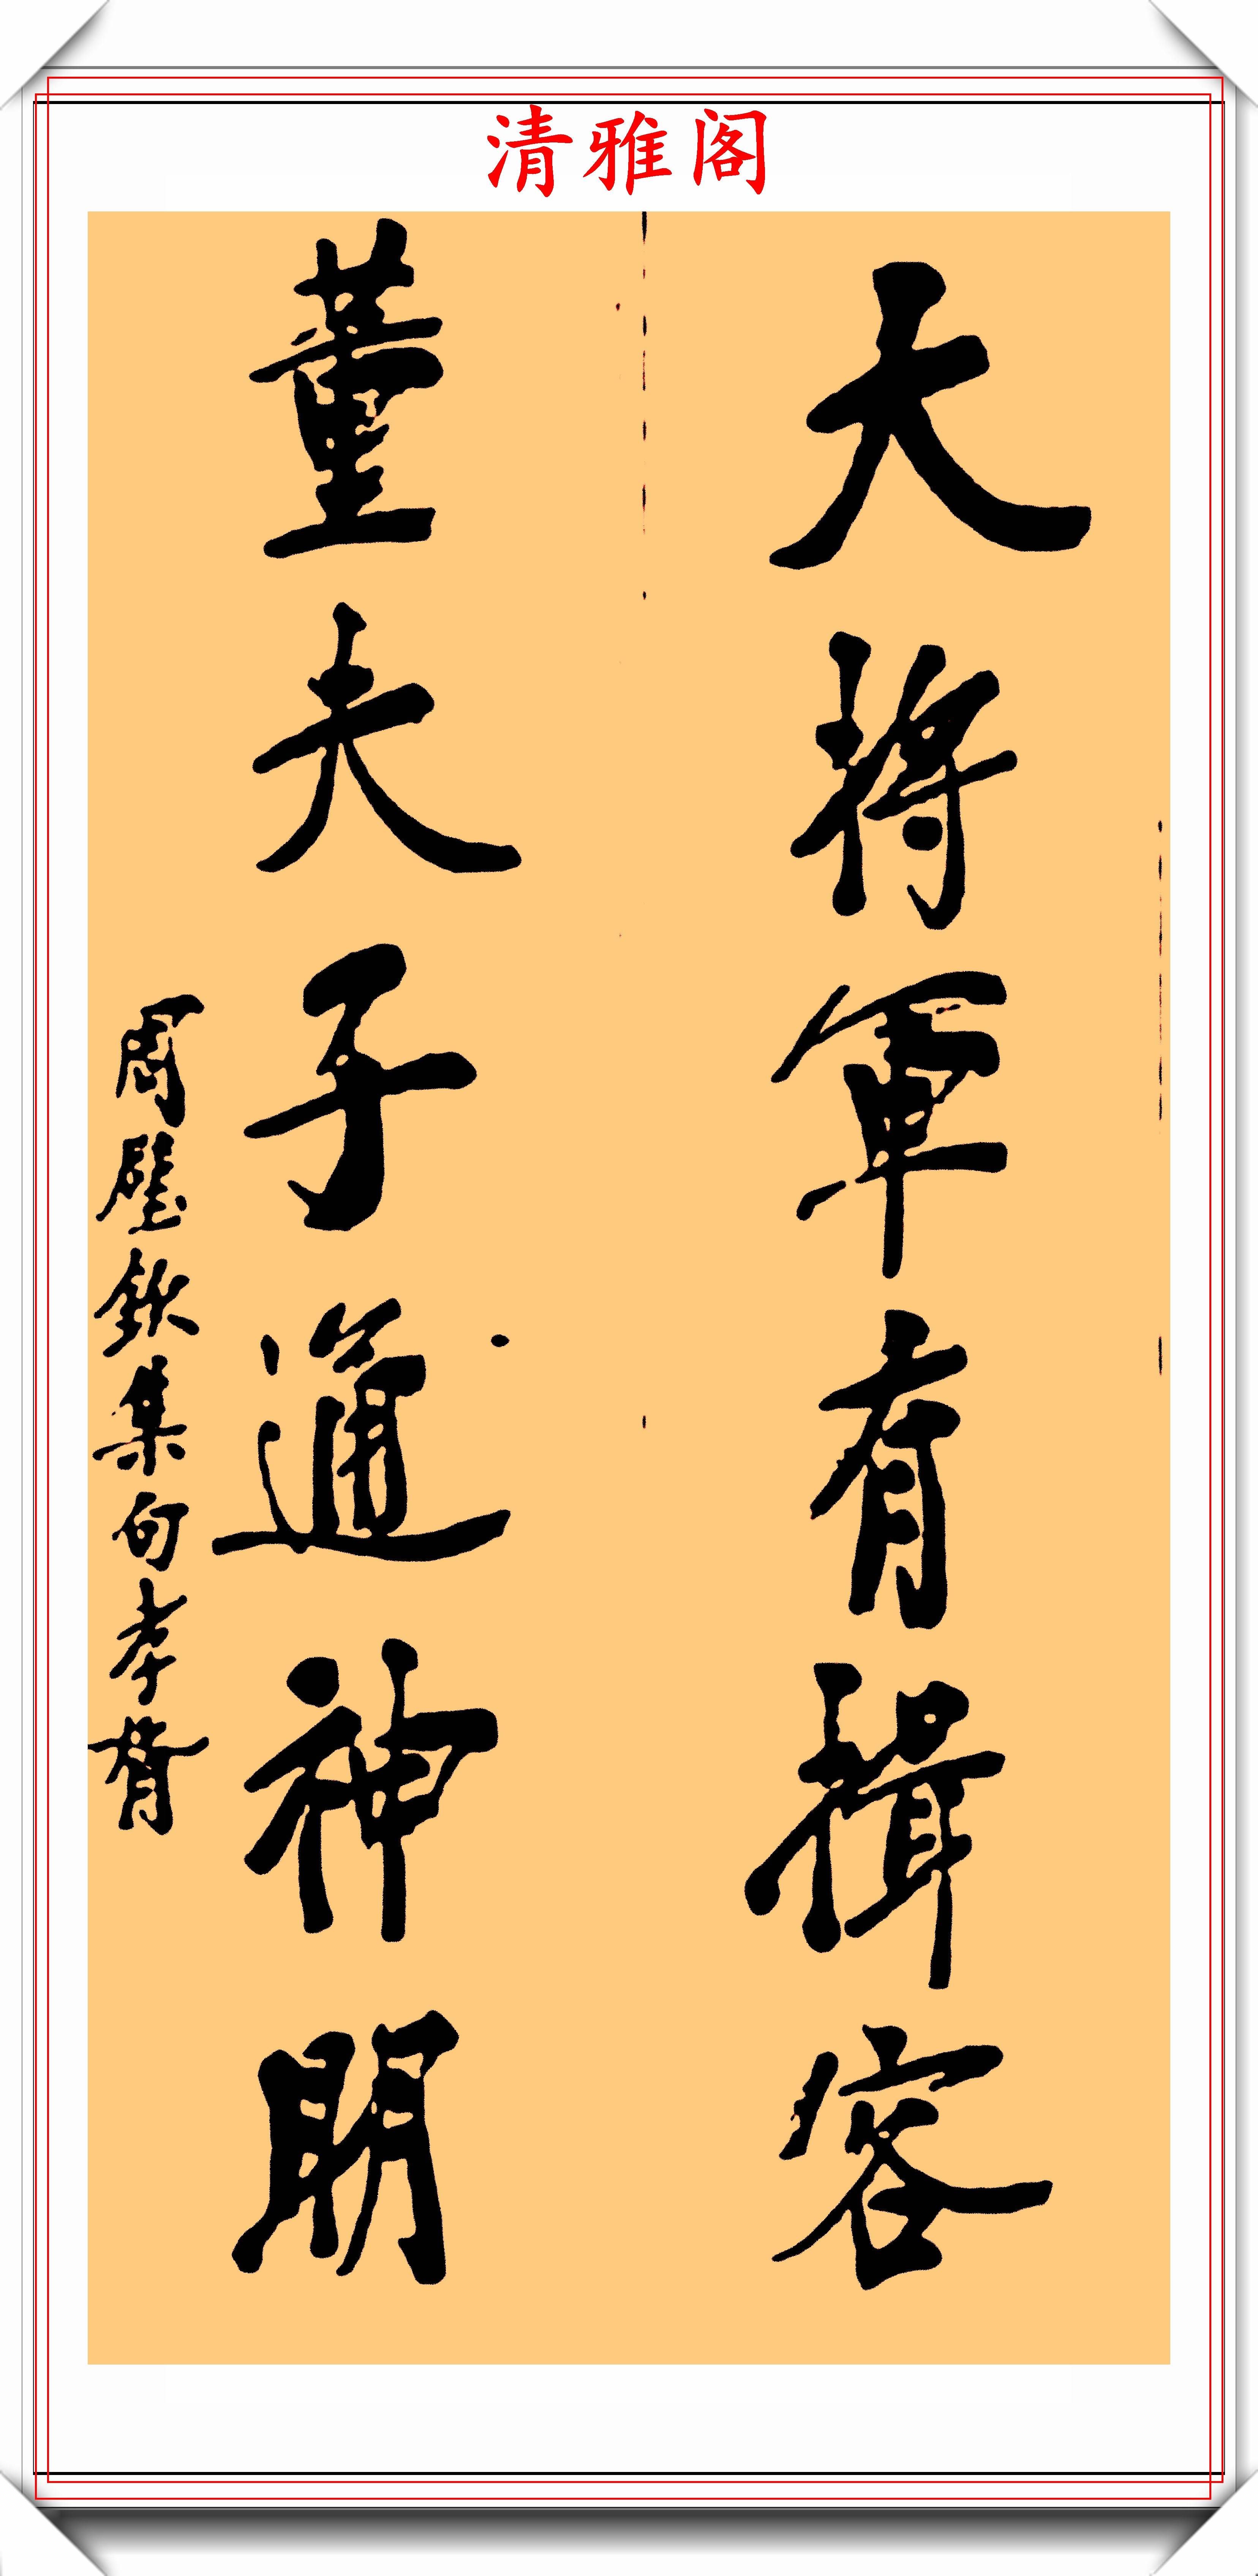 清雅阁
大將軍有揖客
董夫子通神明
周璧欽集句孝胥